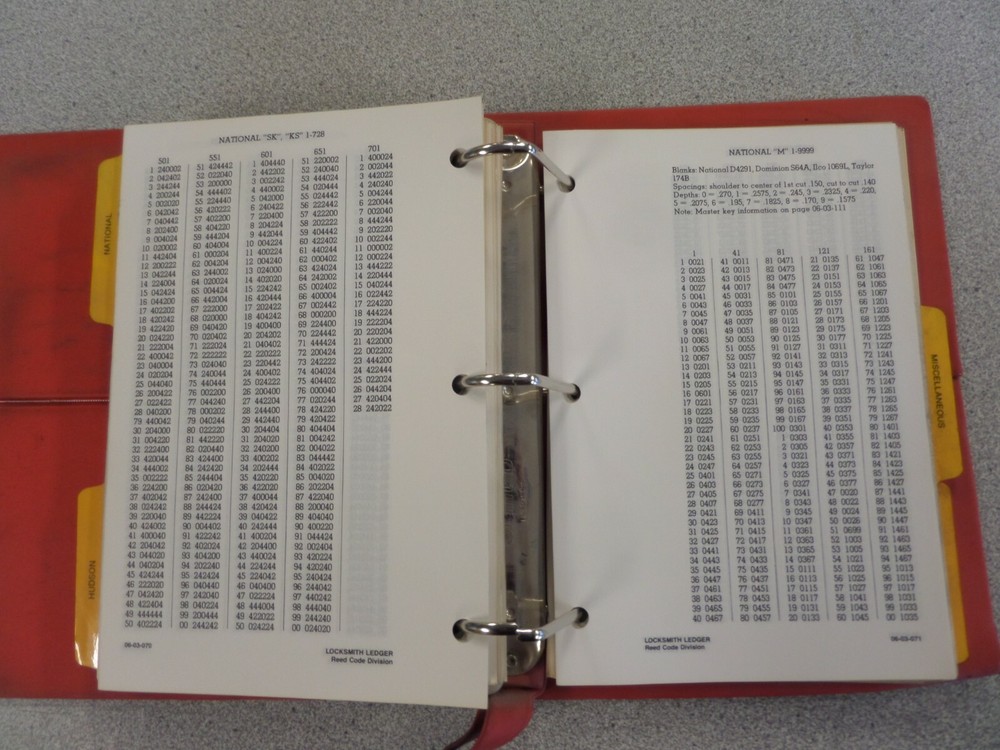 NATIONAL
HUDSON
NATIONAL "SK", "KS" 1-728
501 551 601 651 701
1 240002 51 424442 1 404440 51 220002 1 400024
2 042402 52 022240 2 442202 52 240040 2 002044
3 244244 53 200000 3 002242 53 444024 3 442022
4 200244 54 444402 4 440002 54 020440 4 240240
5 002020 55 224440 5 042000 55 024442 5 004244
6 042042 56 420222 6 240422 56 222244 6 220044
7 040442 57 402200 7 220400 57 422200 7 002040
8 202400 58 404220 8 204224 58 202222 8 444244
9 004024 59 444204 9 442044 59 404442 9 202220
10 020002 60 404004 10 004224 60 422402 10 022244
11 442404 61 000204 11 400224 61 440244 11 000002
12 200222 62 004204 12 004240 62 000402 12 000224
13 042244 63 244002 13 024000 63 424024 13 444222
14 224004 64 020024 14 402020 64 242002 14 220444
15 042424 65 004424 15 224442 65 000402 15 024040
16 044200 66 442004 16 420444 66 400004 16 022442
17 402202 67 222000 17 202442 67 002244 17 224220
18 420242 68 020000 18 404242 68 000200 18 444224
19 422420 69 040420 19 400400 69 224400 19 222204
20 024220 70 020402 20 204202 70 224442 20 220404
21 222004 71 224024 21 040402 71 444424 21 422000
22 400042 72 222222 22 220402 72 200424 22 002202
23 040004 73 222240 23 220442 73 242222 23 444200
24 020204 74 240044 24 400402 74 404024 24 422444
25 044040 75 440444 25 224222 75 440402 25 022024
26 200422 76 022200 26 200400 76 000040 26 044204
27 022422 77 044240 27 422204 77 044402 27 420404
28 040200 78 000202 28 244400 78 424220 28 242022
79 440042 79 040244 29 442440 79 420422
30 204000 80 022220 30 204404 80 404404
31 004220 81 442220 31 204020 81 004242
32 222400 82 020440 32 240200 82 004022
33 420044 83 424400 33 400202 83 044442
34 444002 84 242420 34 202444 84 402022
35 002222 85 244404 35 420220 85 004020
36 224200 86 020420 36 422020 86 202204
37 402042 87 242400 37 400044 87 422040
38 024242 88 244424 38 420424 88 200040
39 220040 89 442224 39 022440 89 404040
40 424002 90 004402 40 242444 90 400220
41 400040 91 422242 41 400204 91 044424
42 204042 92 402024 42 204400 92 002404
43 044020 93 404200 43 440024 93 420224
44 040204 94 202240 44 224424 94 420240
45 424244 95 242424 45 224042 95 240424
46 222020 96 040440 46 040400 96 244042
47 042420 97 242040 47 022224 97 440242
48 422404 98 040224 48 444004 98 444040
49 444444 99 200444 49 422022 99 244240
50 402224 00 244242 50 024224 00 024020
06-03-070
LOCKSMITH LEDGER
Reed Code Division
NATIONAL "M" 1-9999
Blanks: National D4291, Dominion S64A, Ilco 1069L, Taylor
174B
Spacings: shoulder to center of 1st cut .150, cut to cut .140
Depths: 0 = .270, 1 = .2575, 2 = .245, 3 = .2325, 4 = .220,
5 = .2075, 6 = .195, 7 = .1825, 8 = .170, 9 = .1575
Note: Master key information on page 06-03-111
1 41 81 121 161
1 0021 41 0011 81 0471 21 0135 61 1047
2 0023 42 0013 82 0473 22 0137 62 1061
3 0025 43 0015 83 0475 23 0151 63 1063
4 0027 44 0017 84 0477 24 0153 64 1065
5 0041 45 0031 85 0101 25 0155 65 1067
6 0043 46 0033 86 0103 26 0157 66 1201
7 0045 47 0035 87 0105 27 0171 67 1203
8 0047 48 0037 88 0121 28 0173 68 1205
9 0061 49 0051 89 0123 29 0175 69 1223
10 0063 50 0053 90 0125 30 0177 70 1225
11 0065 51 0055 91 0127 31 0311 71 1227
12 0067 52 0057 92 0141 32 0313 72 1241
13 0201 53 0211 93 0143 33 0315 73 1243
14 0203 54 0213 94 0145 34 0317 74 1245
15 0205 55 0215 95 0147 35 0331 75 1247
16 0601 56 0217 96 0161 36 0333 76 1261
17 0221 57 0231 97 0163 37 0335 77 1263
18 0223 58 0233 98 0165 38 0337 78 1265
19 0225 59 0235 99 0167 39 0351 79 1267
20 0227 60 0237 100 0301 40 0353 80 1401
21 0241 61 0251 1 0303 41 0355 81 1403
22 0243 62 0253 2 0305 42 0357 82 1405
23 0245 63 0255 3 0321 43 0371 83 1421
24 0247 64 0257 4 0323 44 0373 84 1423
25 0401 65 0271 5 0325 45 0375 85 1425
26 0403 66 0273 6 0327 46 0377 86 1427
27 0405 67 0275 7 0341 47 0020 87 1441
28 0407 68 0277 8 0343 48 0022 88 1443
29 0421 69 0411 9 0345 49 0024 89 1445
30 0423 70 0413 10 0347 50 0026 90 1447
31 0425 71 0415 11 0361 51 0699 91 1461
32 0427 72 0417 12 0363 52 1003 92 1463
33 0441 73 0431 13 0365 53 1005 93 1465
34 0443 74 0433 14 0367 54 1021 94 1467
35 0445 75 0435 15 0111 55 1023 95 1015
36 0447 76 0437 16 0113 56 1025 96 1015
37 0461 77 0451 17 0115 57 1027 97 1017
38 0463 78 0453 18 0117 58 1041 98 1031
39 0465 79 0455 19 0131 59 1043 99 1033
40 0467 80 0457 20 0133 60 1045 00 1035
LOCKSMITH LEDGER
Reed Code Division
06-03-071
MISCELLANEOUS